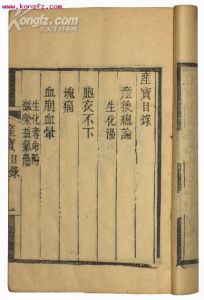 www.kongfz.com
產寶目錄
產後總論
生化湯
胞衣不下
塊痛
血崩血暈
生化奪命湯
滋榮益氣湯
產寶目錄